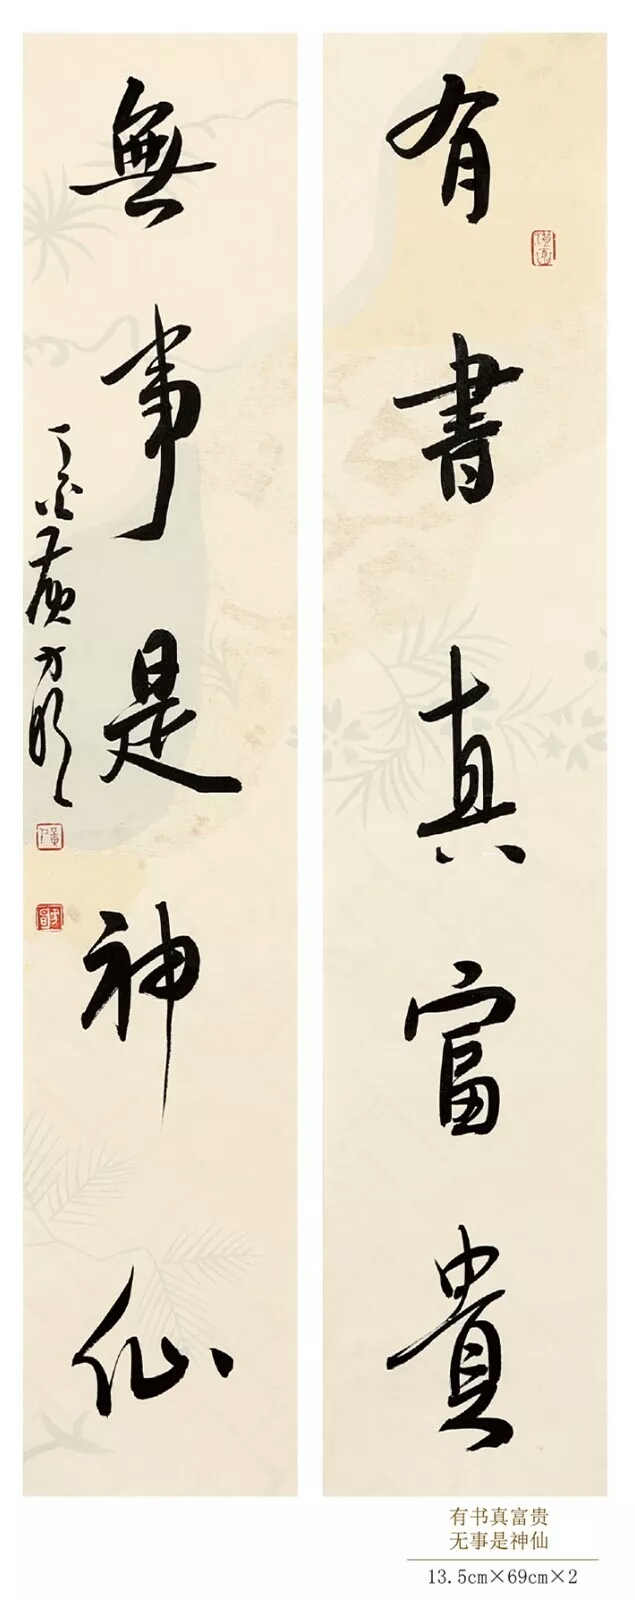 有書真富貴
無事是神仙
丁酉黄方
有书真富贵
无事是神仙
13.5cm×69cm×2